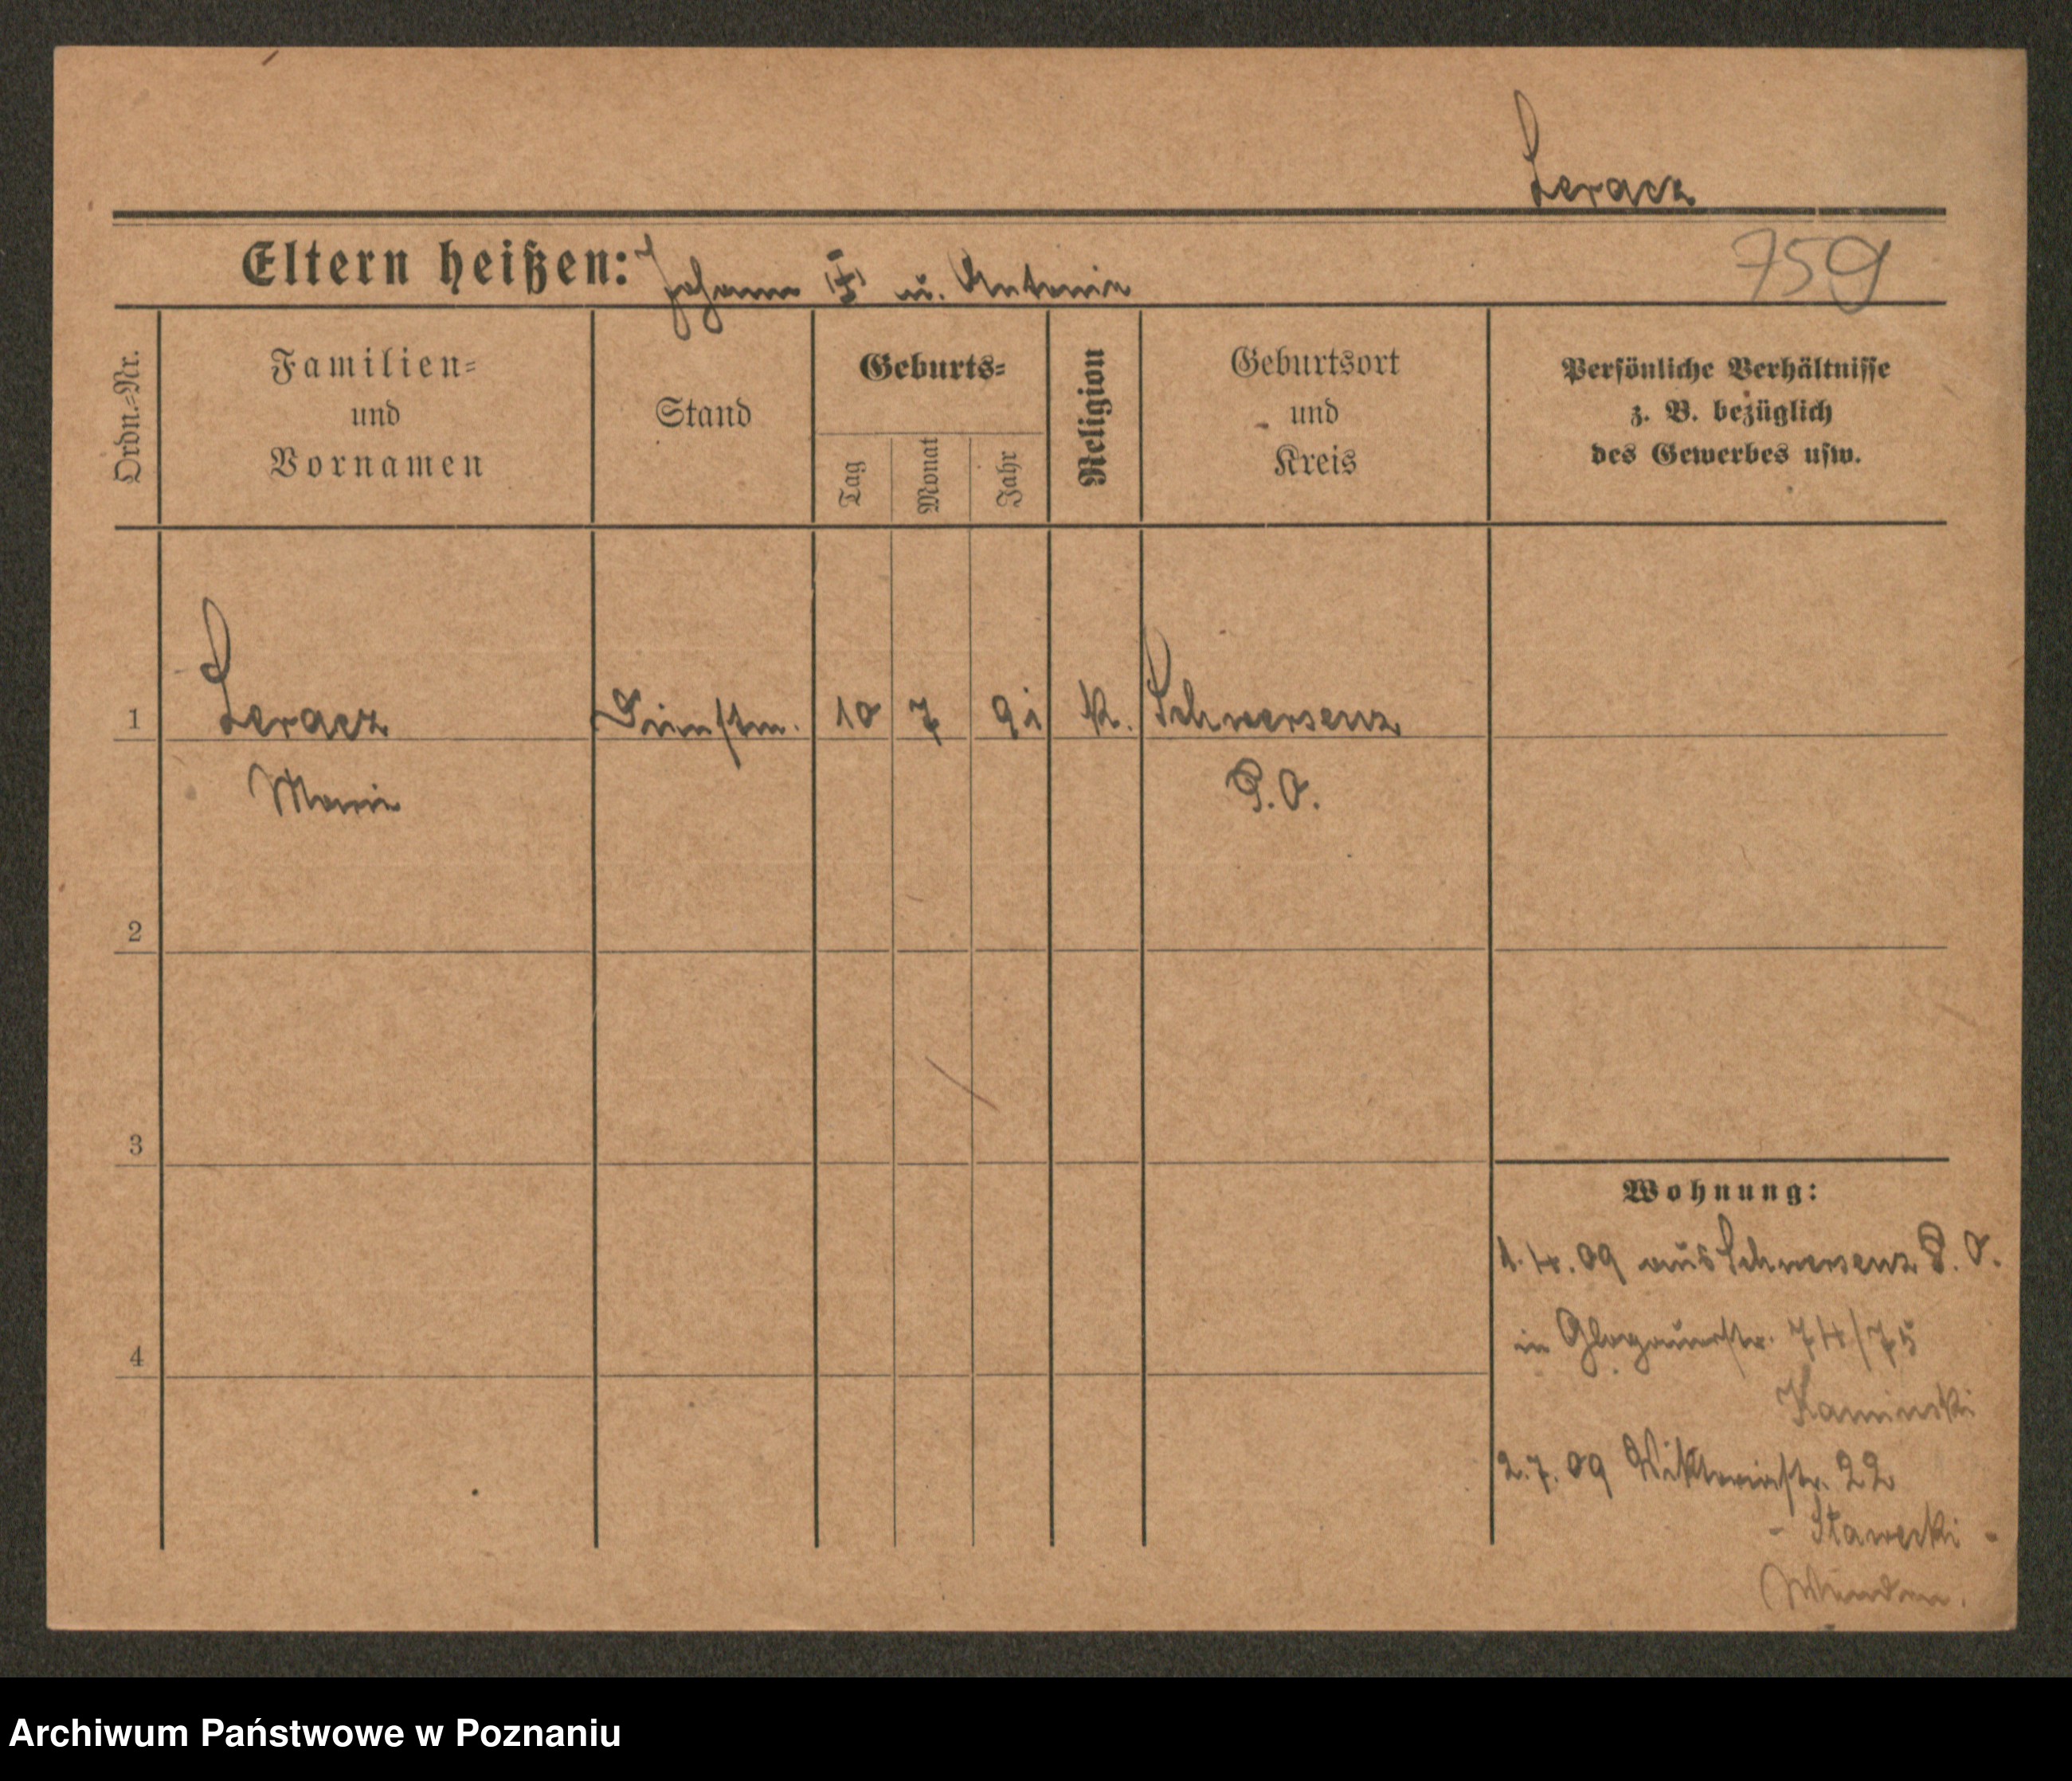 Leracz
Eltern heißen: Johann (†) u. Antonie
759
Ordn.=Nr.
Familien=
und
Vornamen
Stand
Geburts=
Tag
Monat
Jahr
Religion
Geburtsort
und
Kreis
Persönliche Verhältnisse
z. B. bezüglich
des Gewerbes usw.
1 Leracz Dienstm. 10 7 91 K. Schwersenz
Marie P.O.
2
3
4
Wohnung:
1.4.09 aus Schwersenz P. O.
in Glogauerstr. 74/75
Kaminski
2.7.09 Viktoriastr. 22
- Stawecki -
Archiwum Państwowe w Poznaniu